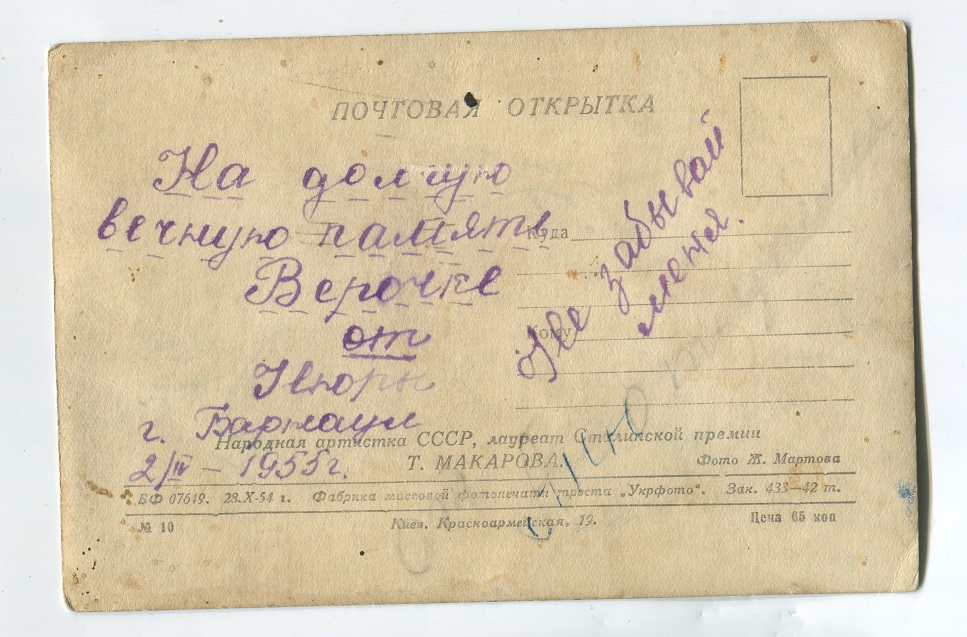 ПОЧТОВАЯ ОТКРЫТКА
На долгую
вечную память
Верочке
от
Нюры
г. Барнаул
2/IV – 1955г.
Не забывай
меня.
Куда
Кому
Народная артистка СССР, лауреат Сталинской премии
Т. МАКАРОВА.
Фото Ж. Мартова
БФ 07649. 28.X-54 г. Фабрика массовой фотопечати треста „Укрфото“. Зак. 433—42 т.
№ 10
Киев. Красноармейская, 19.
Цена 65 коп